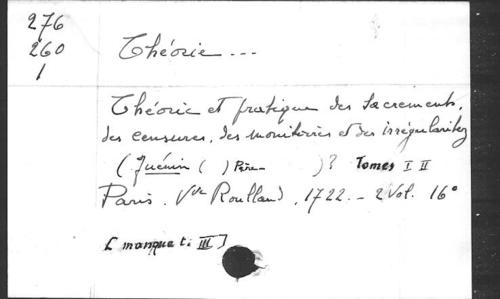 276
260
1
Théorie ...
Théorie et pratique des Sacrements,
des censures, des monitoires et des irrégularitez
(Juénin ( ) Père )? Tomes I II
Paris. Vve Roulland, 1722. - 2 Vol. 16°
[manque t. III]